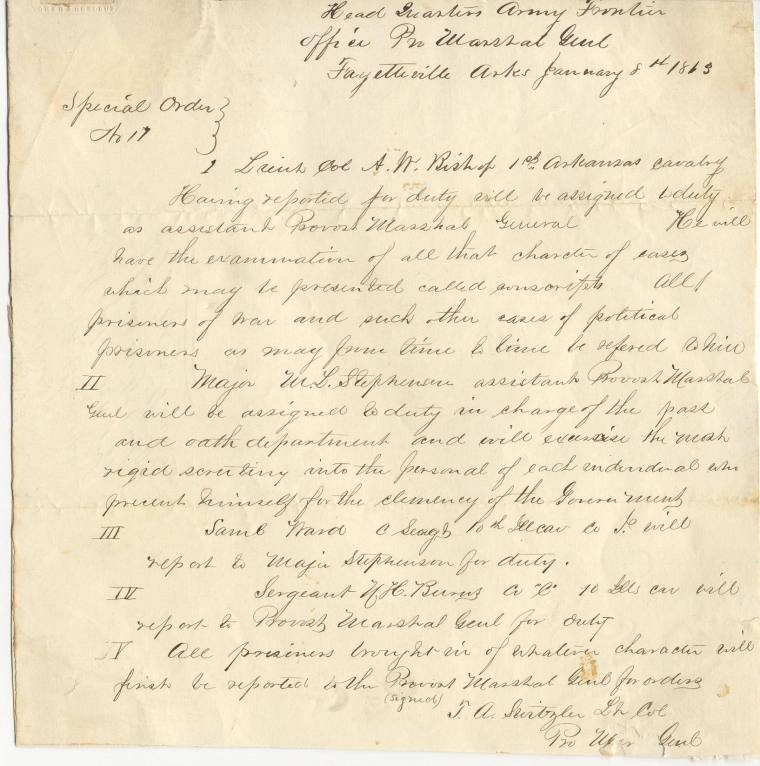 Head Quarters Army Frontier
Office Pro Marshal Genl
Fayetteville Arks January 8th 1863
Special Order
No 11
I Lieut Col A. W. Bishop 1st Arkansas cavalry
Having reported for duty will be assigned to duty
as assistant Provost Marshal General He will
have the examination of all that charcter of cases
which may be presented called conscripts All
prisoners of war and such other cases of political
prisoners as may from time to time be refered to him
II Major M. L. Stephenson assistant Provost Marshal
Genl will be assigned to duty in charge of the past
and oath department and will exercise the most
rigid scrutiny into the personal of each individual who
present himself for the clemency of the Goverment
III Saml Ward C Seagt 10th Ills cav Co will
report to Major Stephenson for duty.
IV Sergeant H. Burns Co "C" 10 Ills cav will
report to Provost Marshal Genl for duty
V All prisoners brought in of whatever character will
first be reported to the Provost Marshal Genl for orders
(signed)
T. A. Switzler Lt Col
Pro Mar Genl